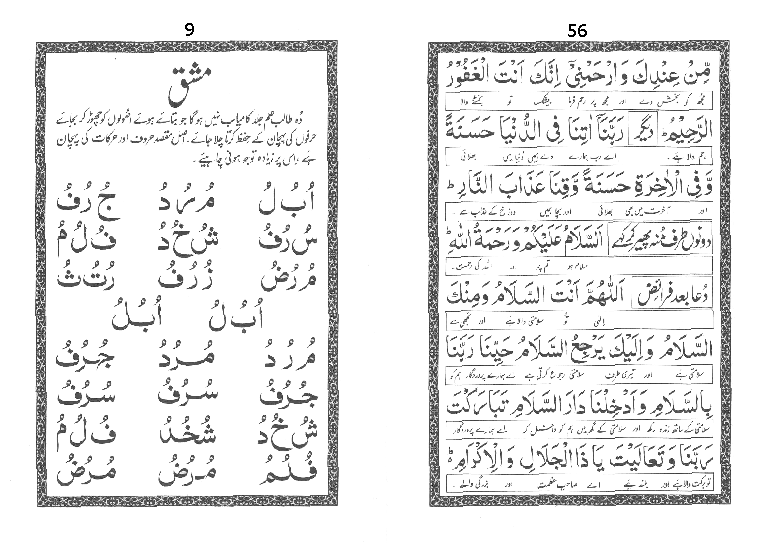 9
مشق
وہ طالب علم جلد کامیاب نہیں ہوگا جو بتائے ہوئے اصولوں کو چھوڑ کر بجائے
حرفوں کی پہچان کے حفظ کرتا چلا جائے۔ اصل مقصد حروف اور حرکات کی پہچان
ہے۔ اس پر زیادہ توجہ ہونی چاہیئے۔
اُ بُ لُ مُ رُ دُ جُ رُ فُ
سُ رُ فُ شُ خُ دُ فُ لُ مُ
مُ رُ ضُ زُ رُ فُ رُ تُ ثُ
اُ بُ لُ اُبُلُ
مُ رُ دُ مُرُدُ جُرُفُ
جُرُفُ سُرُفُ سُرُفُ
شُ خُ دُ شُخُدُ فُ لُ مُ
فُلُمُ مُرُضُ مُرُضُ
56
مِّنْ عِنْدِكَ وَارْحَمْنِیْٓ اِنَّكَ اَنْتَ الْغَفُوْرُ
مجھ کو بخشش دے اور مجھ پر رحم فرما بیشک تو بخشنے والا
الرَّحِیْمُ ؕ دیگر رَبَّنَآ اٰتِنَا فِی الدُّنْیَا حَسَنَةً
رحم والا ہے۔ اے رب ہمارے دے ہمیں دنیا میں بھلائی
وَّفِی الْاٰخِرَةِ حَسَنَةً وَّقِنَا عَذَابَ النَّارِ ؕ
اور آخرت میں بھی بھلائی اور بچا ہمیں دوزخ کے عذاب سے۔
دونوں طرف منہ پھیر کر کہے اَلسَّلَامُ عَلَیْكُمْ وَرَحْمَةُ اللّٰهِ ؕ
سلام ہو تم پر اور اللہ کی رحمت۔
دُعا بعد فرائض اَللّٰهُمَّ اَنْتَ السَّلَامُ وَمِنْكَ
الٰہی تو سلامتی والا ہے اور تجھی سے
السَّلَامُ وَاِلَیْكَ یَرْجِعُ السَّلَامُ حَیِّنَا رَبَّنَا
سلامتی ہے اور تیری طرف سلامتی رجوع کرتی ہے اے ہمارے پروردگار ہم کو
بِالسَّلَامِ وَاَدْخِلْنَا دَارَ السَّلَامِ تَبَارَكْتَ
سلامتی کے ساتھ زندہ رکھ اور سلامتی کے گھر میں ہم کو داخل کر اے ہمارے پروردگار
رَبَّنَا وَتَعَالَیْتَ یَا ذَا الْجَلَالِ وَالْاِكْرَامِ ؕ
تو برکت والا ہے اور بلند ہے اے صاحب عظمت اور بزرگی والے۔